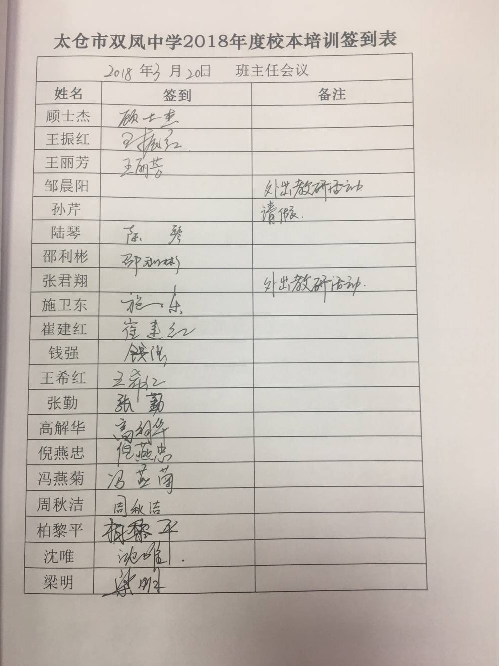 太仓市双凤中学2018年度校本培训签到表
2018 年3 月 20日 班主任会议
姓名 签到 备注
顾士杰 顾士杰
王振红 王振红
王丽芳 王丽芳
邹晨阳 外出教研活动
孙芹 请假.
陆琴 陆琴
邵利彬 邵利彬
张君翔 外出教研活动.
施卫东 施卫东
崔建红 崔建红
钱强 钱强
王希红 王希红
张勤 张勤
高解华 高解华
倪燕忠 倪燕忠
冯燕菊 冯燕菊
周秋洁 周秋洁
柏黎平 柏黎平
沈唯 沈唯.
梁明 梁明